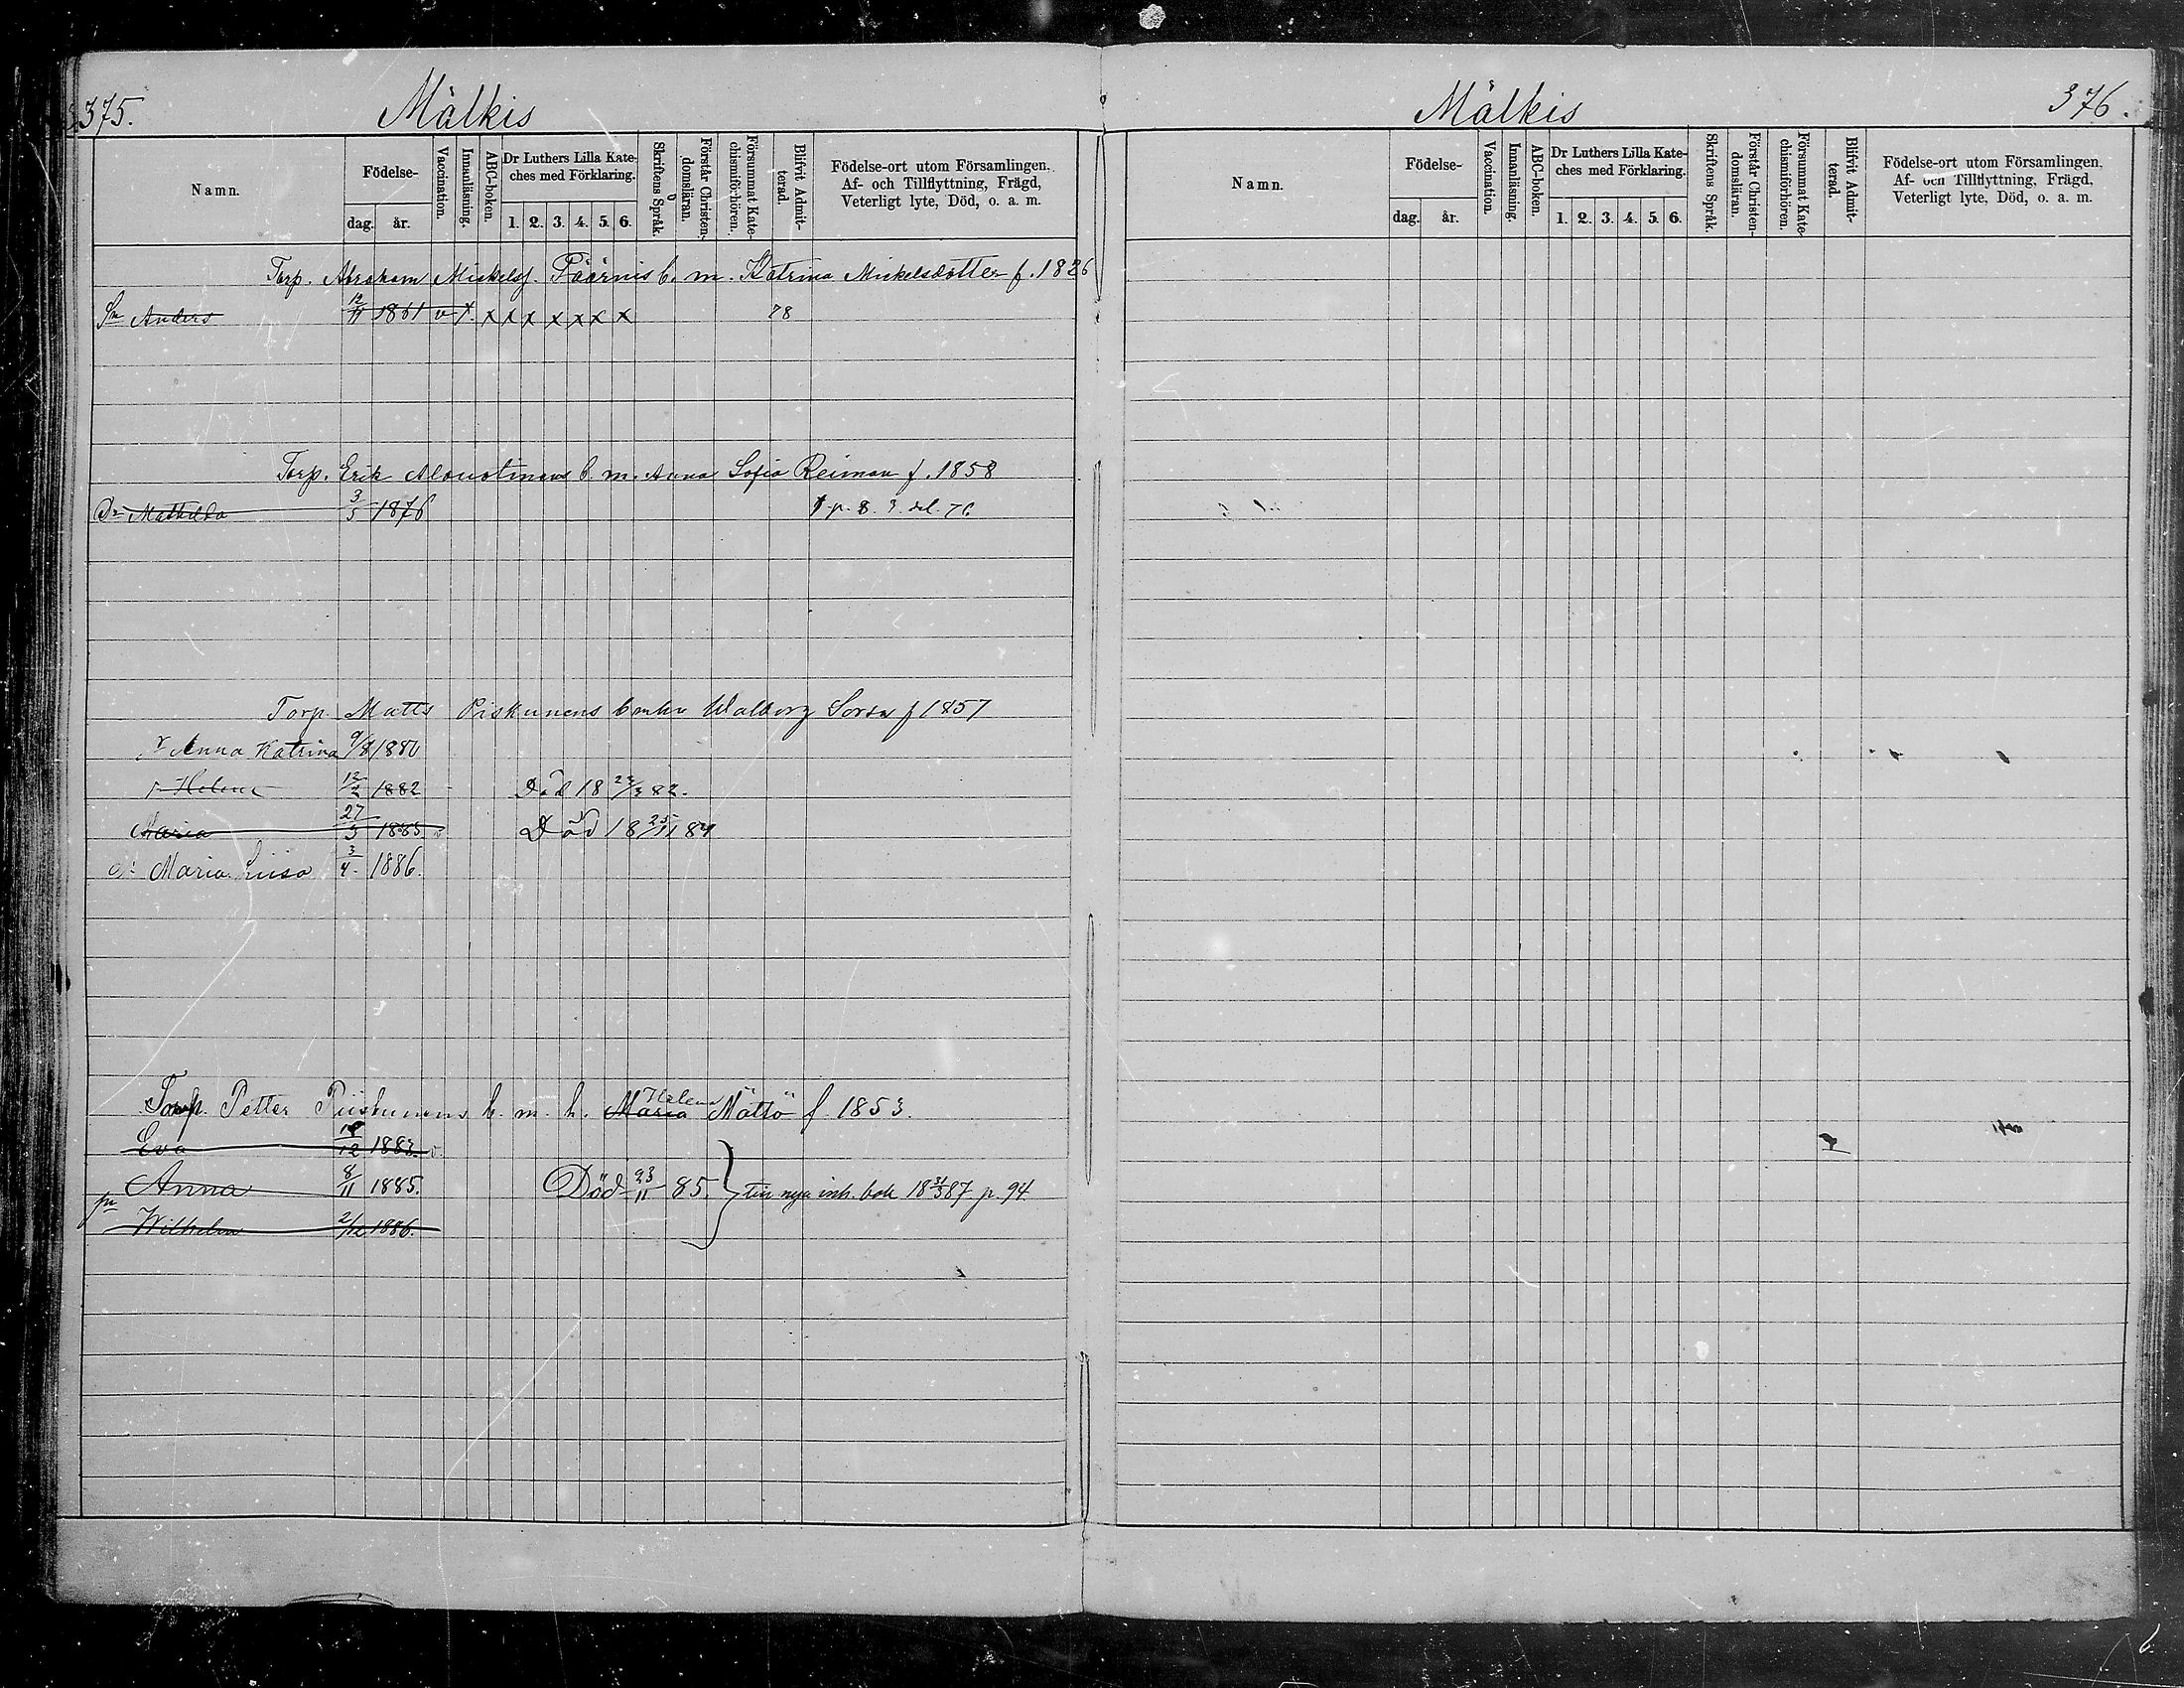 375.
Mälkis
Namn.
Födelse-
dag.
år.
Vaccination.
Innanläsning.
ABC-boken.
Dr Luthers Lilla Kate-
ches med Förklaring.
1. 2. 3. 4. 5. 6.
Skriftens Språk.
Förstår Christen-
domsläran.
Försummat Kate-
chismiförhören.
Blifvit Admit-
terad.
Födelse-ort utom Församlingen.
Af- och Tillflyttning, Frägd,
Veterligt lyte, Död, o. a. m.
Torp. Abraham Mickelss. Päärnis b. m. Katrina Mickelsdotter f. 1826
Sn Anders 12/11 1861 v x x x x x x x x 78
Torp. Erik b. m. Anna Sofia Reiman f. 1858
Dr Mathilda 3/5 1876 p. 8. 3. del. 76
Torp. Matts Piskunens b m hu Walborg f 1857
Anna Katrina 9/8 1880
Helena 12/2 1882 Död 18 23/3 82.
Maria 27/5 1883 Död 18 25/11 84
Maria Liisa 3/4 1886.
Torp. Petter Piiskunens b. m. h. Maria Helena Mättö f 1853.
Eva 1883.
Anna 8/11 1885. Död 23/11 85. } till nya inh. bok 18 31/3 87 p. 94
Wilhelm 2/12 1886.
Mälkis
376.
Namn.
Födelse-
dag.
år.
Vaccination.
Innanläsning.
ABC-boken.
Dr Luthers Lilla Kate-
ches med Förklaring.
1. 2. 3. 4. 5. 6.
Skriftens Språk.
Förstår Christen-
domsläran.
Försummat Kate-
chismiförhören.
Blifvit Admit-
terad.
Födelse-ort utom Församlingen.
Af- och Tillflyttning, Frägd,
Veterligt lyte, Död, o. a. m.